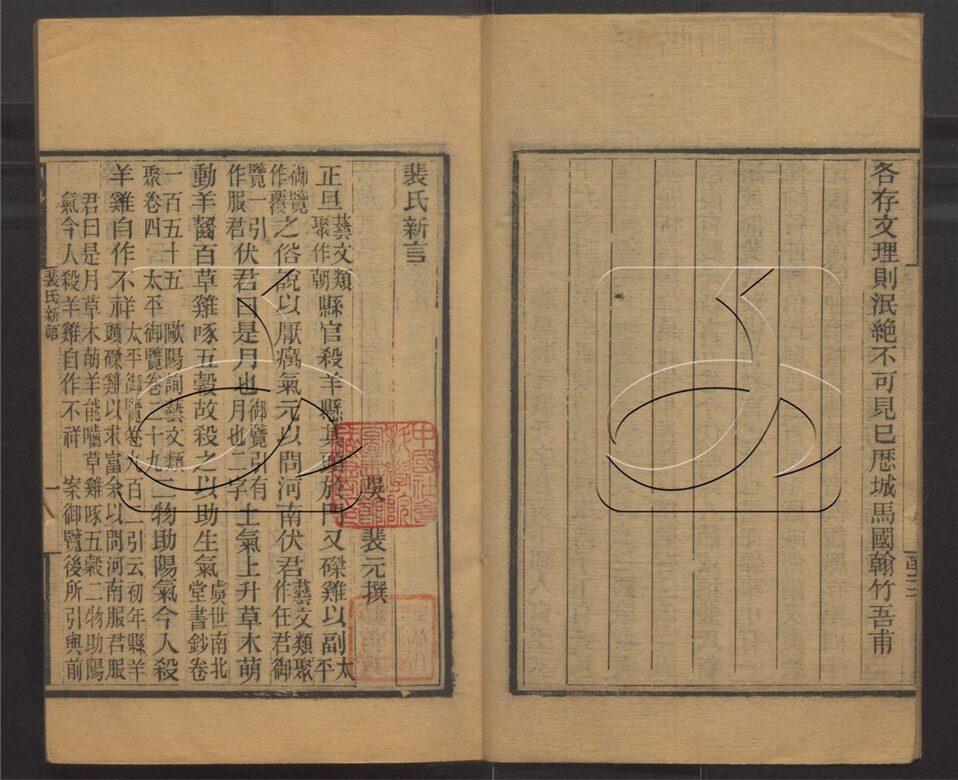 各存文理則泯絕不可見巳歷城馬國翰竹吾甫
裴氏新言
吳 裴元撰
正旦藝文類聚作朝縣官殺羊縣其頭於門又磔雞以副太平
御覽作覆之俗說以厭癘氣元以問河南伏君藝文類聚作任君御
覽一引作服君伏君曰是月也御覽引有月也二字土氣上升草木萌
動羊齧百草雞啄五穀故殺之以助生氣虞世南北堂書鈔卷
一百五十五 歐陽詢藝文類聚卷四 太平御覽卷二十九二物助陽氣今人殺
羊雞自作不祥太平御覽卷九百二引云初年縣羊頭磔雞以求富余以問河南服君服
君曰是月草木萌羊能嚙草雞啄五穀二物助陽氣今人殺羊雞自作不祥 案御覽後所引與前
裴氏新語 一